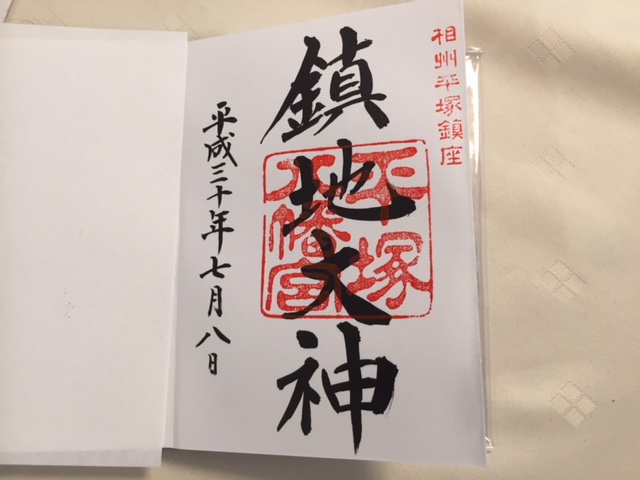 相州平塚鎮座
鎮地大神
平塚
八幡宮
平成三十年七月八日